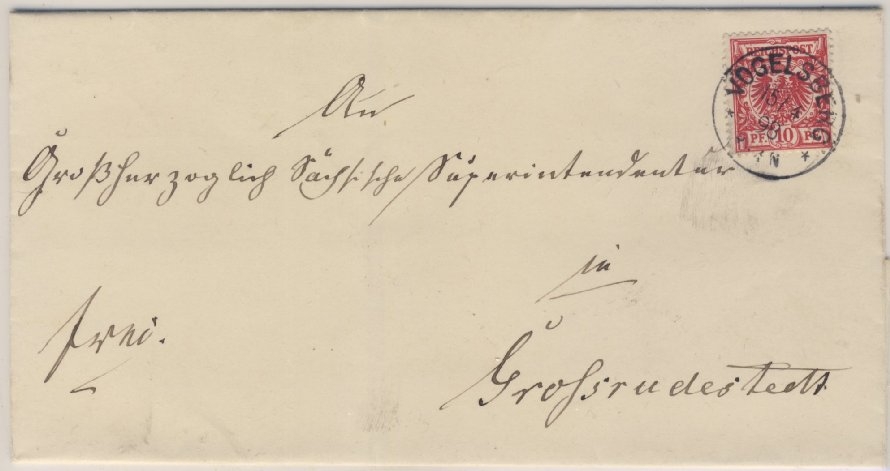 REICHSPOST
VOGELSBERG
PF. 10 PF.
An
Großherzoglich Sächsische Superintendentur
in
frei.
Grossrudestedt